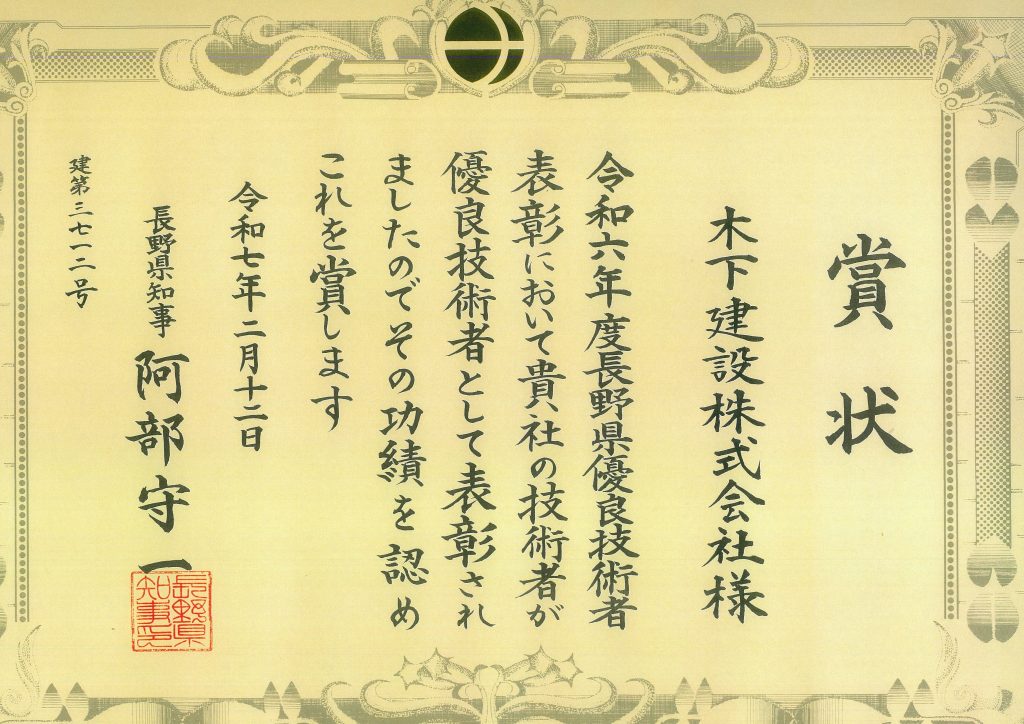 賞状
木下建設株式会社様
令和六年度長野県優良技術者
表彰において貴社の技術者が
優良技術者として表彰され
ましたのでその功績を認め
これを賞します
令和七年二月十二日
長野県知事 阿部守一
長野県知事之印
建第三七一二号